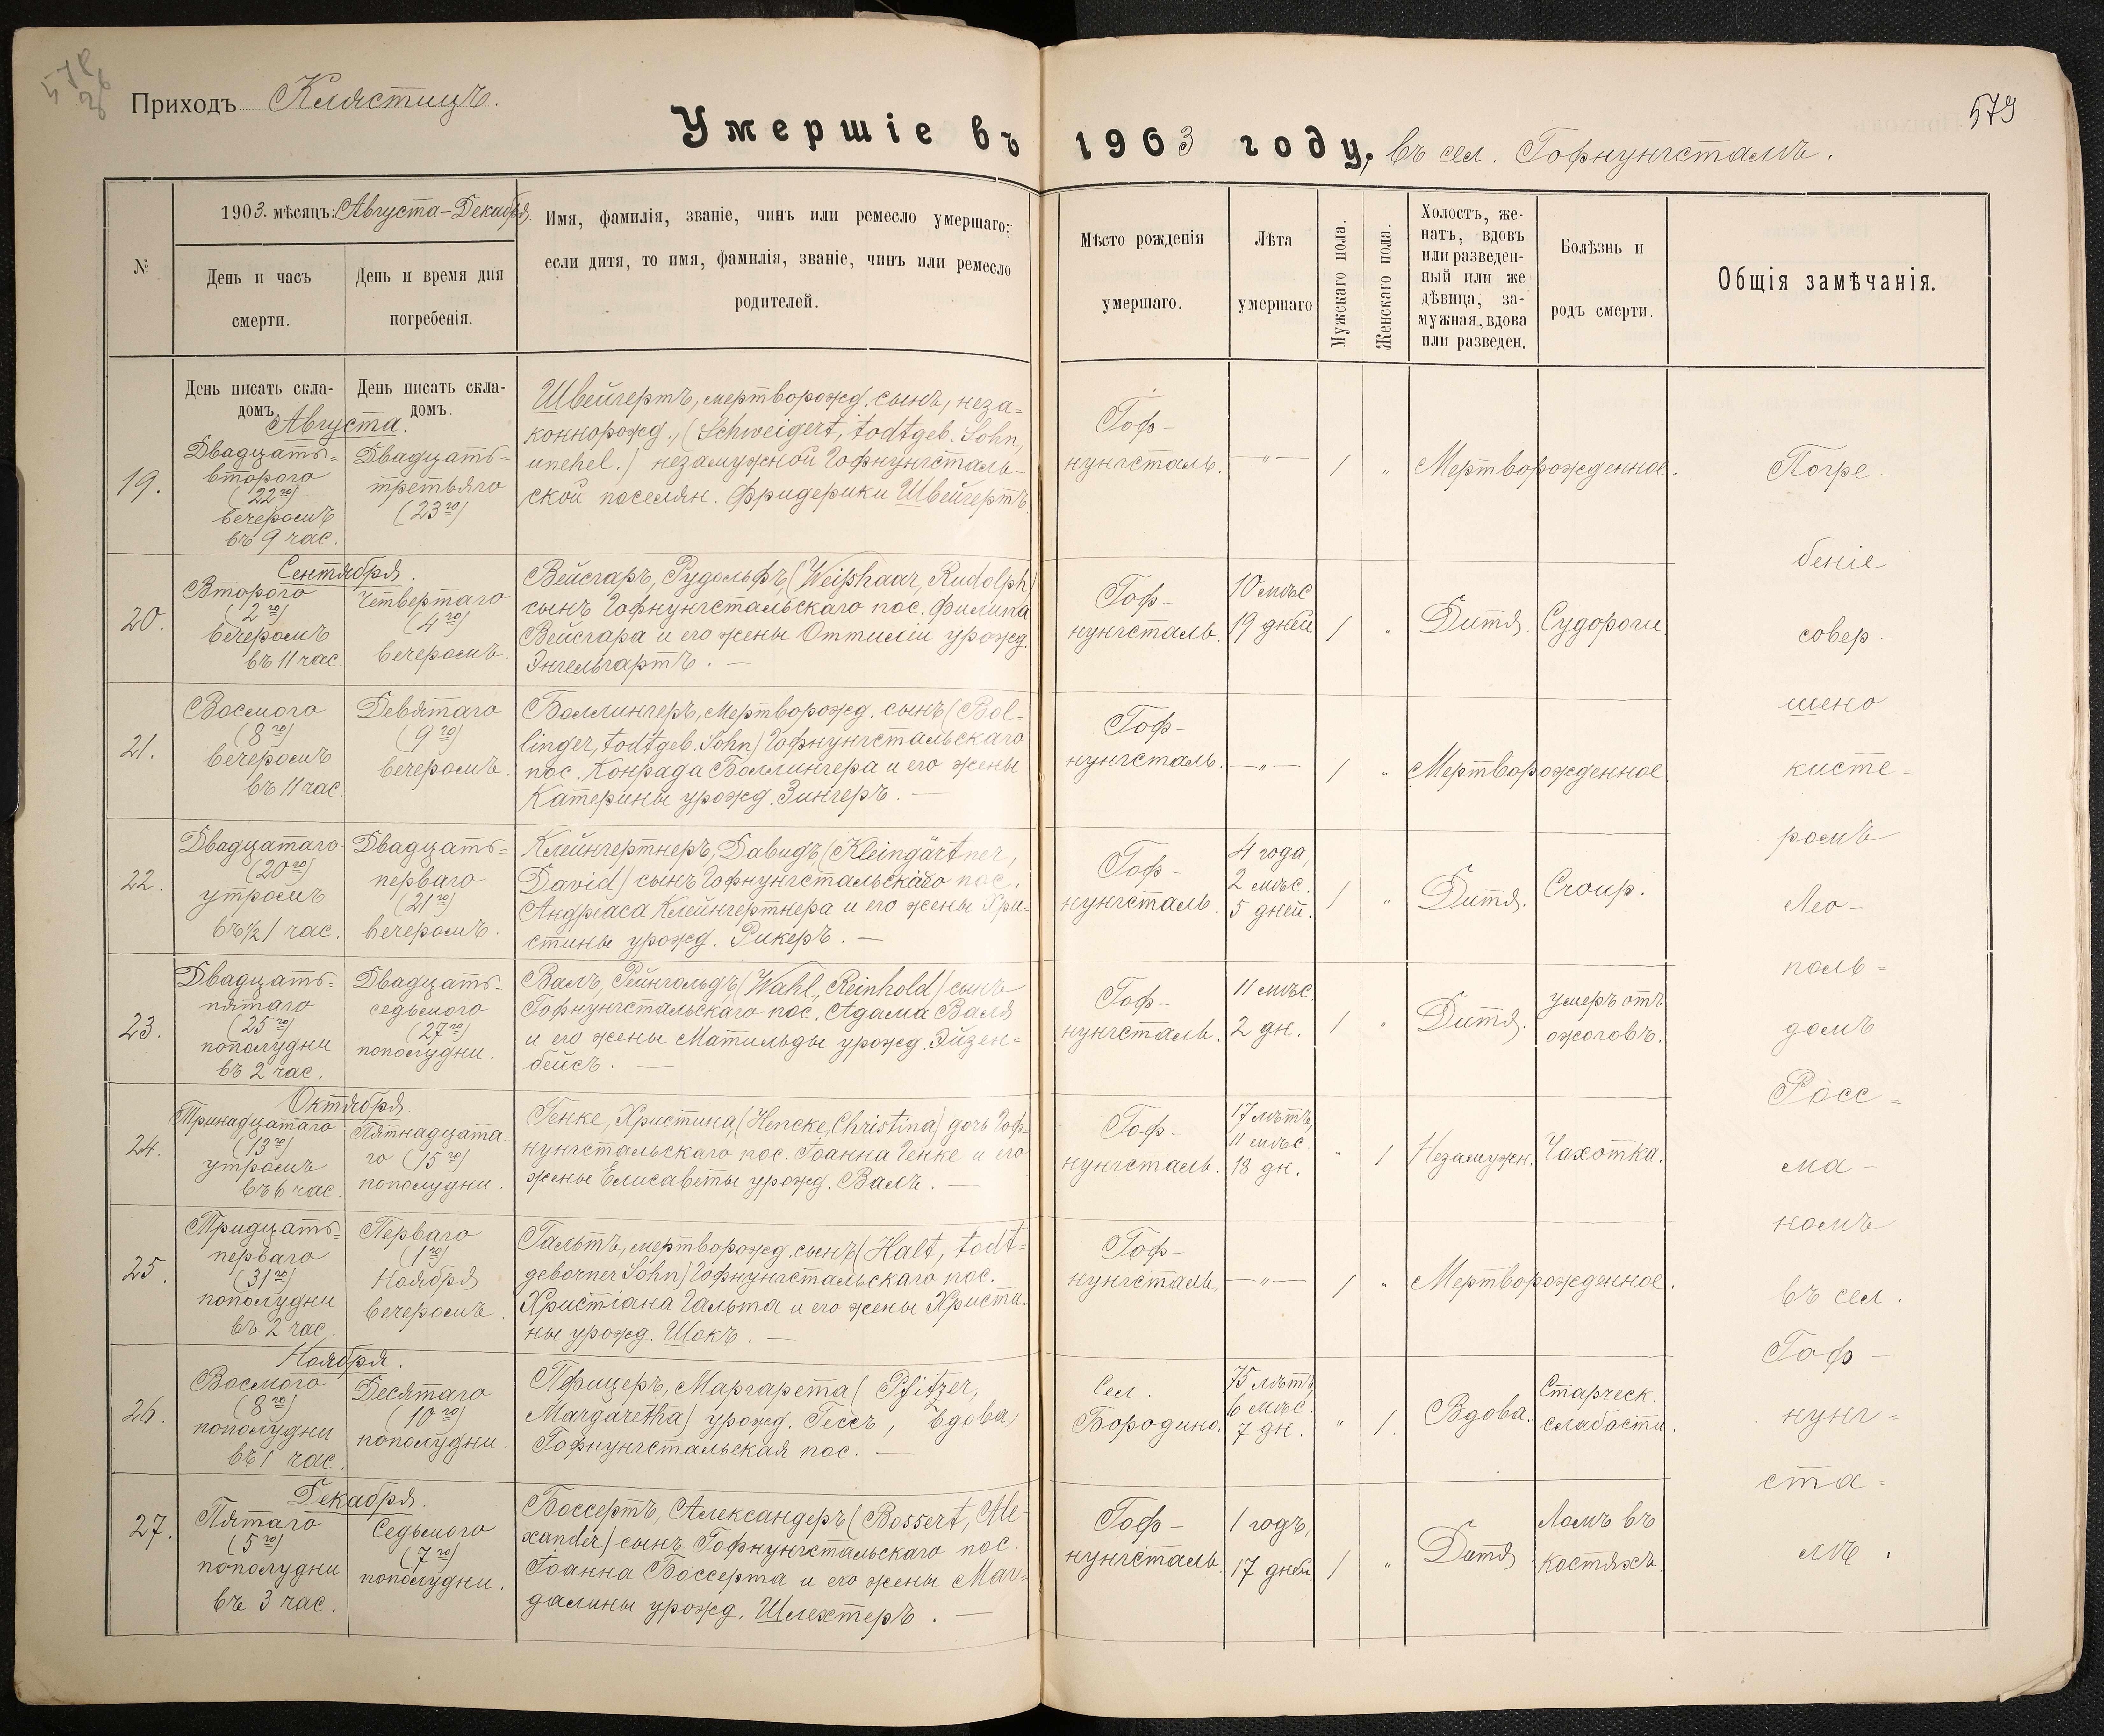 Приходъ Клястицъ.
579
Умершіе въ 1903 году, въ сел. Гофнунгсталъ.
№
1903. мѣсяцъ: Августа-Декабря.
День и часъ
смерти.
День и время дня
погребенія.
Имя, фамилія, званіе, чинъ или ремесло умершаго;
если дитя, то имя, фамилія, званіе, чинъ или ремесло
родителей.
Мѣсто рожденія
умершаго.
Лѣта
умершаго
Мужскаго пола.
Женскаго пола.
Холостъ, же-
натъ, вдовъ
или разведен-
ный или же
дѣвица, за-
мужная, вдова
или разведен.
Болѣзнь и
родъ смерти.
Общія замѣчанія.
День писать скла-
домъ.
День писать скла-
домъ.
Августа.
19.
Двадцать=
второго
(22го)
вечеромъ
въ 9 час.
Двадцать-
третьяго
(23го)
Швейгертъ, мертворожд. сынъ, неза=
коннорожд., (Schweigert, todtgeb. Sohn,
unehel.) незамужной Гофнунгсталь-
ской поселян. Фридерики Швейгертъ
Гоф-
нунгсталь.
—"—
1
"
Мертворожденное.
Сентября.
20.
Второго
(2го)
вечеромъ
въ 11 час.
Четвертаго
(4го)
вечеромъ.
Вейсгаръ, Рудольфъ, (Weißhaar, Rudolph)
сынъ Гофнунгстальскаго пос. Филипа
Вейсгара и его жены Оттиліи урожд.
Энгельгартъ. —
Гоф-
нунгсталь.
10 мѣс.
19 дней.
1
"
Дитя.
Судороги.
21.
Восмого
(8го)
вечеромъ
въ 11 час.
Девятаго
(9го)
вечеромъ.
Боллингеръ, мертворожд. сынъ (Bol=
linger, todtgeb. Sohn) Гофнунгстальскаго
пос. Конрада Боллингера и его жены
Катерины урожд. Зингеръ. —
Гоф-
нунгсталь.
—"—
1
"
Мертворожденное.
22.
Двадцатаго
(20го)
утромъ
въ ½1 час.
Двадцать=
перваго
(21го)
вечеромъ.
Клейнгертнеръ, Давидъ, (Kleingärtner,
David) сынъ Гофнунгстальскаго пос.
Андреаса Клейнгертнера и его жены Хри=
стины урожд. Рикеръ. —
Гоф-
нунгсталь.
4 года,
2 мѣс.
5 дней.
1
"
Дитя.
Croup.
23.
Двадцать-
пятаго
(25го)
пополудни
въ 2 час.
Двадцать-
седьмого
(27го)
пополудни.
Валъ, Рейнгольдъ, (Wahl, Reinhold) сынъ
Гофнунгстальскаго пос. Адама Валя
и его жены Матильды урожд. Эйзен=
бейсъ. —
Гоф-
нунгсталь.
11 мѣс.
2 дн.
1
"
Дитя.
умеръ отъ
ожоговъ.
Октября.
24.
Тринадцатаго
(13го)
утромъ
въ 6 час.
Пятнадцата=
го (15го)
пополудни.
Генке, Христина, (Hencke, Christina) дочь Гоф-
нунгстальскаго пос. Іоанна Генке и его
жены Елисаветы урожд. Валъ. —
Гоф-
нунгсталь.
17 лѣтъ,
11 мѣс.
18 дн.
"
1
Незамужн.
Чахотка.
25.
Тридцать=
перваго
(31го)
пополудни
въ 2 час.
Перваго
(1го)
Ноября
вечеромъ.
Гальтъ, мертворожд. сынъ (Halt, todt=
geborner Sohn) Гофнунгстальскаго пос.
Христіана Гальта и его жены Христи-
ны урожд. Шокъ. —
Гоф-
нунгсталь,
—"—
1
"
Мертворожденное.
Ноября.
26.
Восмого
(8го)
пополудни
въ 1 час.
Десятаго
(10го)
пополудни.
Пфицеръ, Маргарета (Pfitzer,
Margaretha) урожд. Гессъ, вдова,
Гофнунгстальская пос. —
Сел.
Бородино.
75 лѣтъ,
6 мѣс.
7 дн.
"
1.
Вдова.
Старческ.
слабости.
Декабря.
27.
Пятаго
(5го)
пополудни
въ 3 час.
Седьмого
(7го)
пополудни.
Боссертъ, Александеръ (Bossert, Ale-
xander) сынъ Гофнунгстальскаго пос.
Іоанна Боссерта и его жены Маг=
далины урожд. Шлехтеръ. —
Гоф-
нунгсталь.
1 годъ,
17 дней.
1
"
Дитя.
Ломъ въ
костяхъ.
Погре-
беніе
совер-
шено
кисте=
ромъ
Лео-
поль=
домъ
Росс=
ма-
номъ
въ сел.
Гоф-
нунг=
ста=
лѣ.